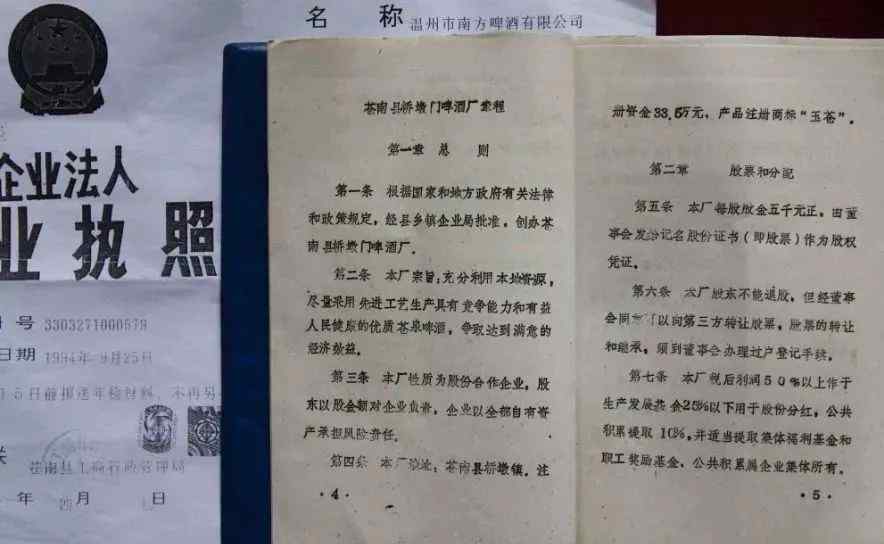 名 称 温州市南方啤酒有限公司
企业法人
业执照
号 3303271000579
日期 1994年9月25日
5日前报送年检材料,不再另
苍南县工商行政管理局
年 月 日
苍南县桥墩门啤酒厂章程
第一章 总 则
第一条 根据国家和地方政府有关法律
和政策规定,经县乡镇企业局批准,创办苍
南县桥墩门啤酒厂。
第二条 本厂宗旨:充分利用本地资源,
尽量采用先进工艺生产具有竞争能力和有益
人民健康的优质苍泉啤酒,争取达到满意的
经济效益。
第三条 本厂性质为股份合作企业,股
东以股金额对企业负责,企业以全部自有资
产承担风险责任。
第四条 本厂地址:苍南县桥墩镇。注
·4·
册资金33.5万元,产品注册商标“玉苍”。
第二章 股票和分配
第五条 本厂每股股金五千元正,由董
事会发给记名股份证书(即股票)作为股权
凭证。
第六条 本厂股东不能退股,但经董事
会同意可以向第三方转让股票,股票的转让
和继承,须到董事会办理过户登记手续。
第七条 本厂税后利润50%以上作于
生产发展基金25%以下用于股份分红,公共
积累提取10%,并适当提取集体福利基金和
职工奖励基金,公共积累属企业集体所有。
·5·